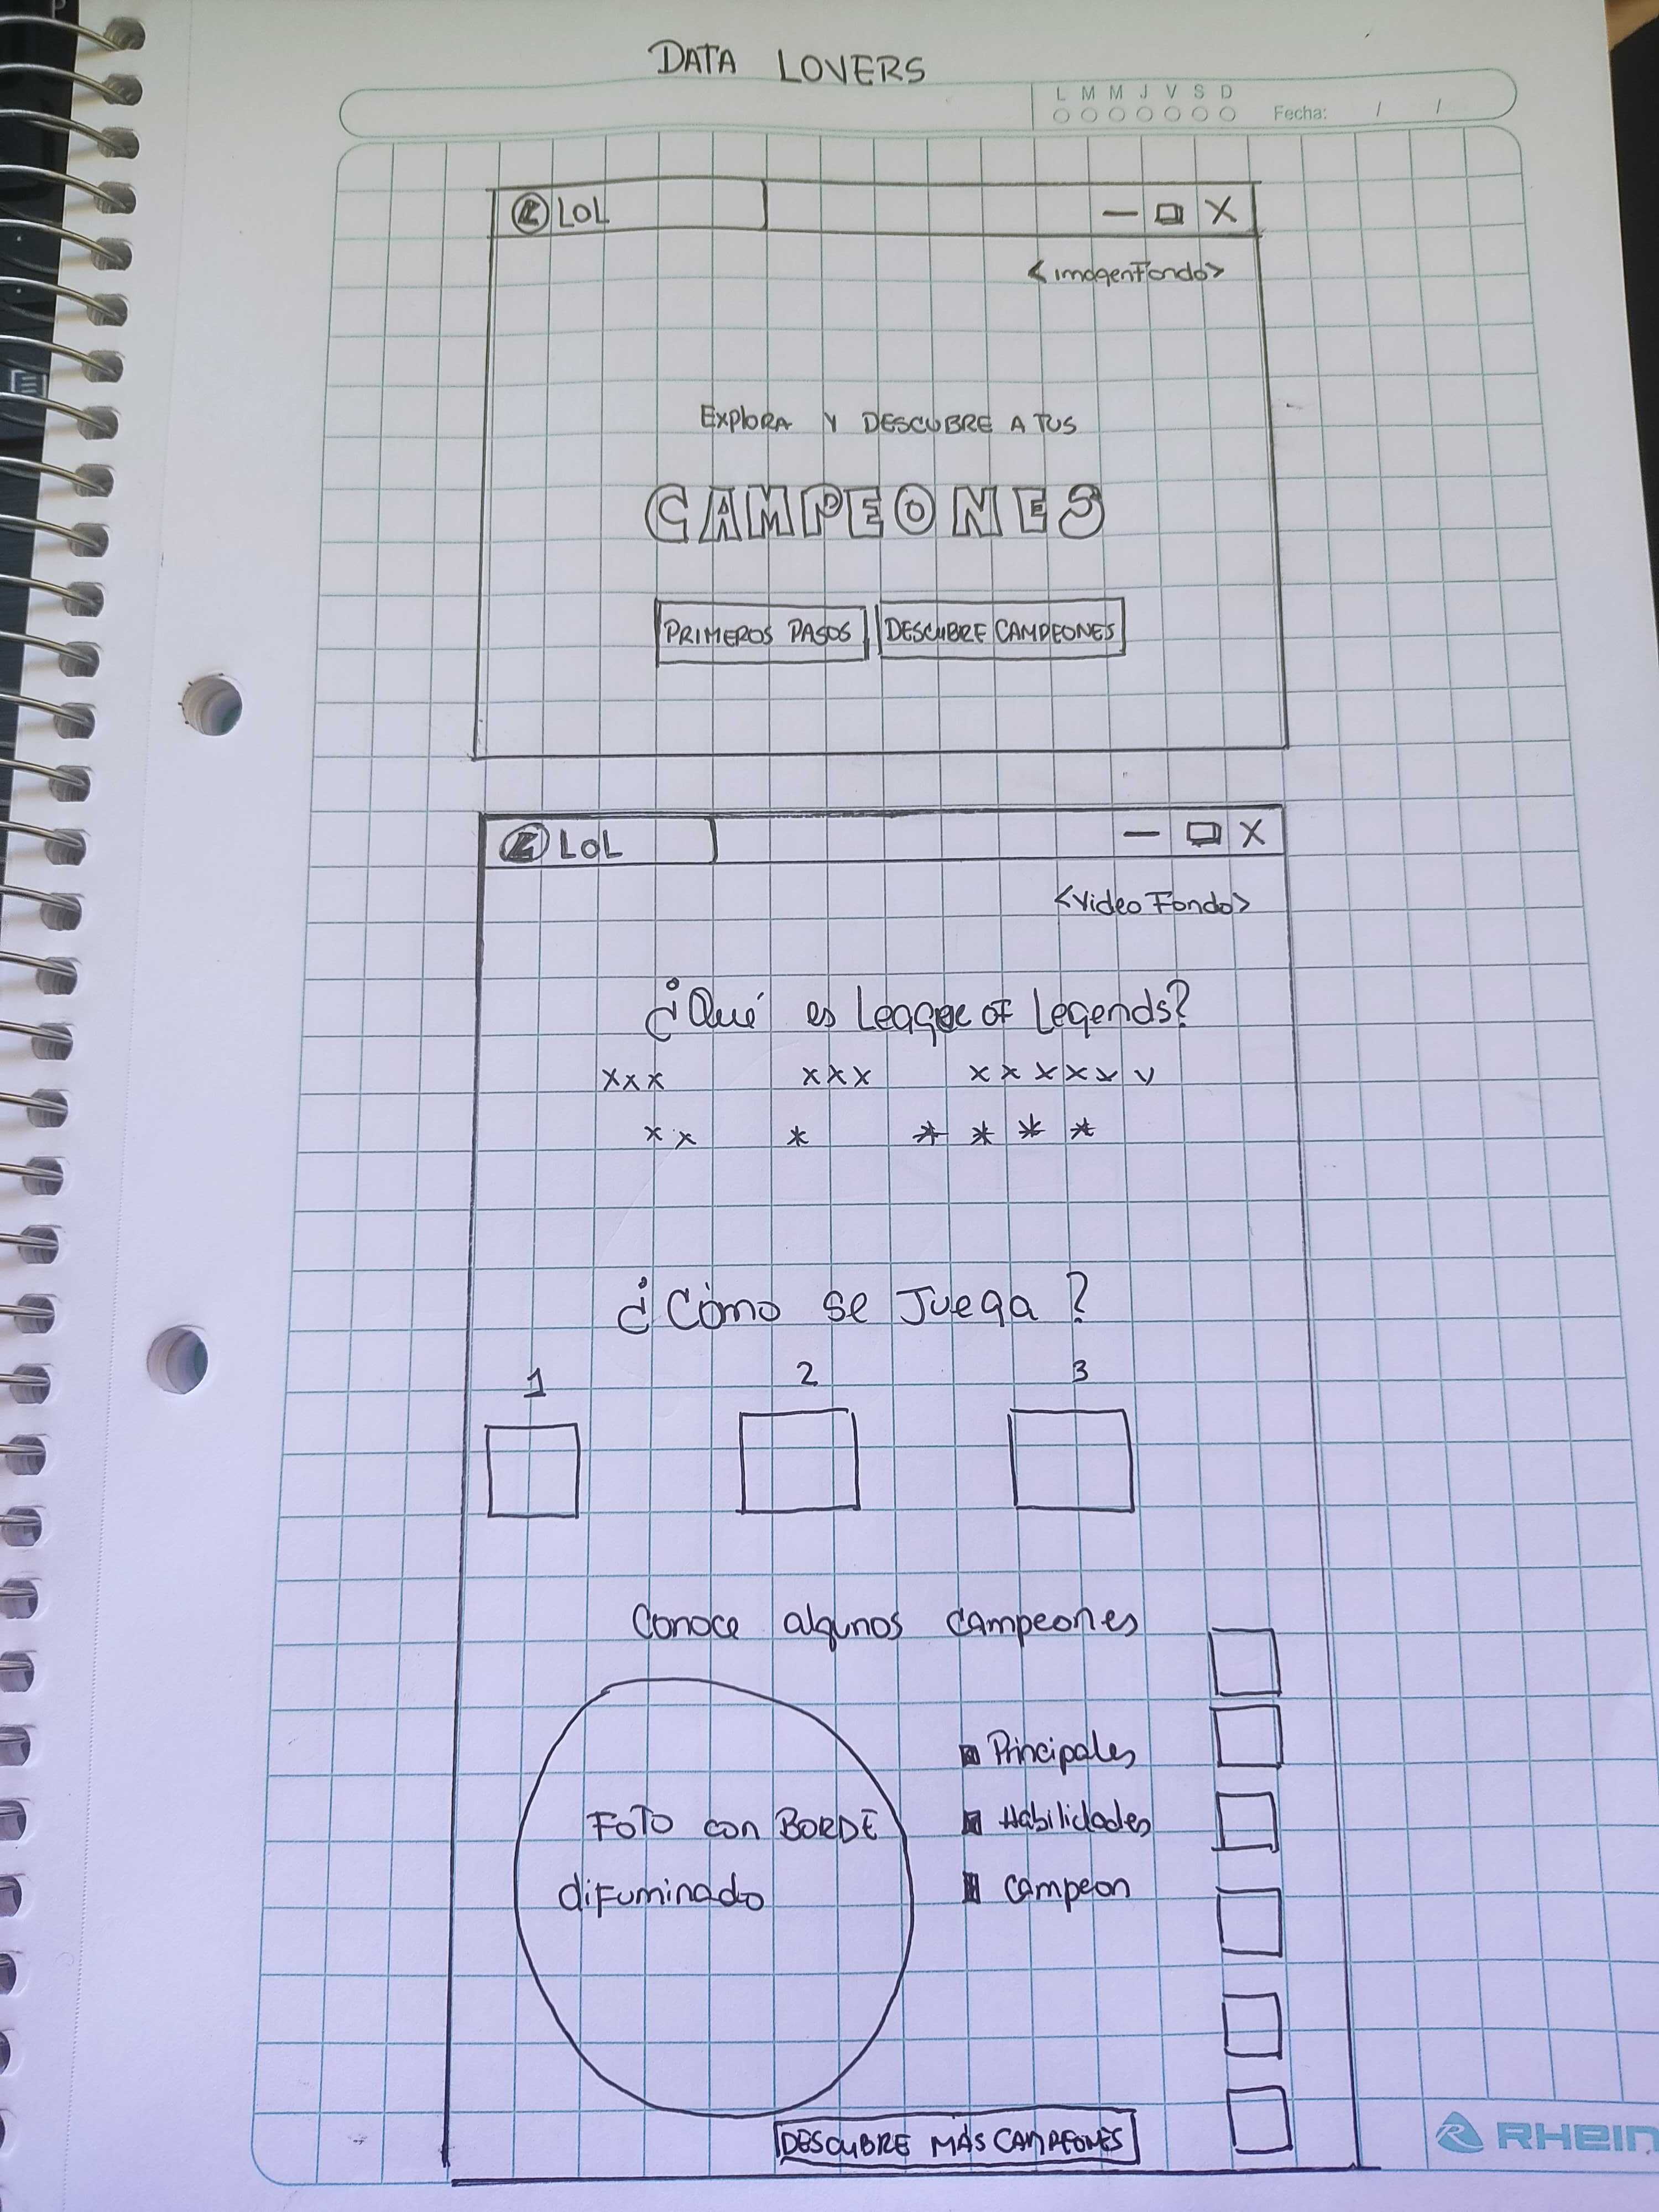 DATA LOVERS
L M M J V S D
Fecha: / /
LOL
<imagenFondo>
EXPLORA Y DESCUBRE A TUS
CAMPEONES
PRIMEROS PASOS
DESCUBRE CAMPEONES
LOL
<video Fondo>
¿Qué es League of Legends?
xxx xxx xxxxxv
xx * * * * *
¿Cómo se Juega?
1 2 3
Conoce algunos campeones
Principales
FOTO con BORDE
Habilidades
difuminado
campeon
DESCUBRE MÁS CAMPEONES
RHEIN